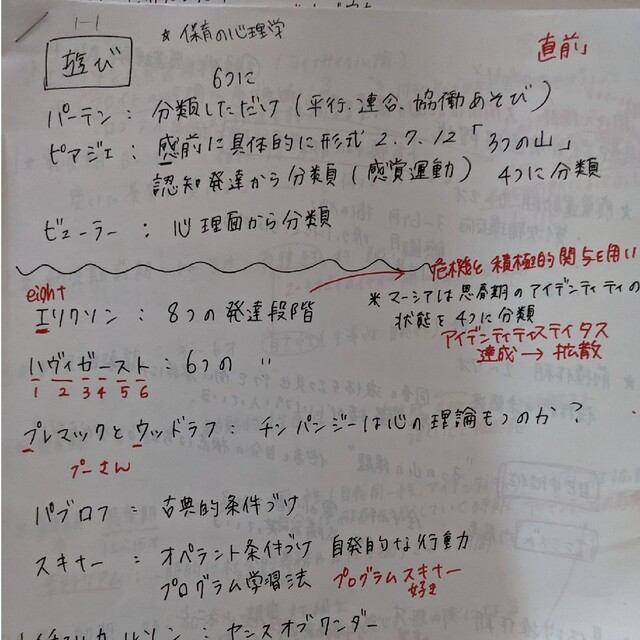 1-1
遊び
* 保育の心理学
直前
6つに
パーテン : 分類しただけ (平行、連合、協働あそび)
ピアジェ : 感前に具体的に形式 2.7.12 「3つの山」
認知発達から分類 (感覚運動) 4つに分類
ビューラー : 心理面から分類
危機と積極的関与を用い
eight
エリクソン : 8つの発達段階
* マーシアは思春期のアイデンティティの
状態を4つに分類
アイデンティティステイタス
達成 → 拡散
ハヴィガースト : 6つの 〃
1 2 3 4 5 6
プレマックとウッドラフ : チンパンジーは心の理論もつのか?
プーさん
パブロフ : 古典的条件づけ
スキナー : オペラント条件づけ 自発的な行動力
プログラム学習法 プログラムスキナー
好き
イチェルカールソン : センスオブワンダー